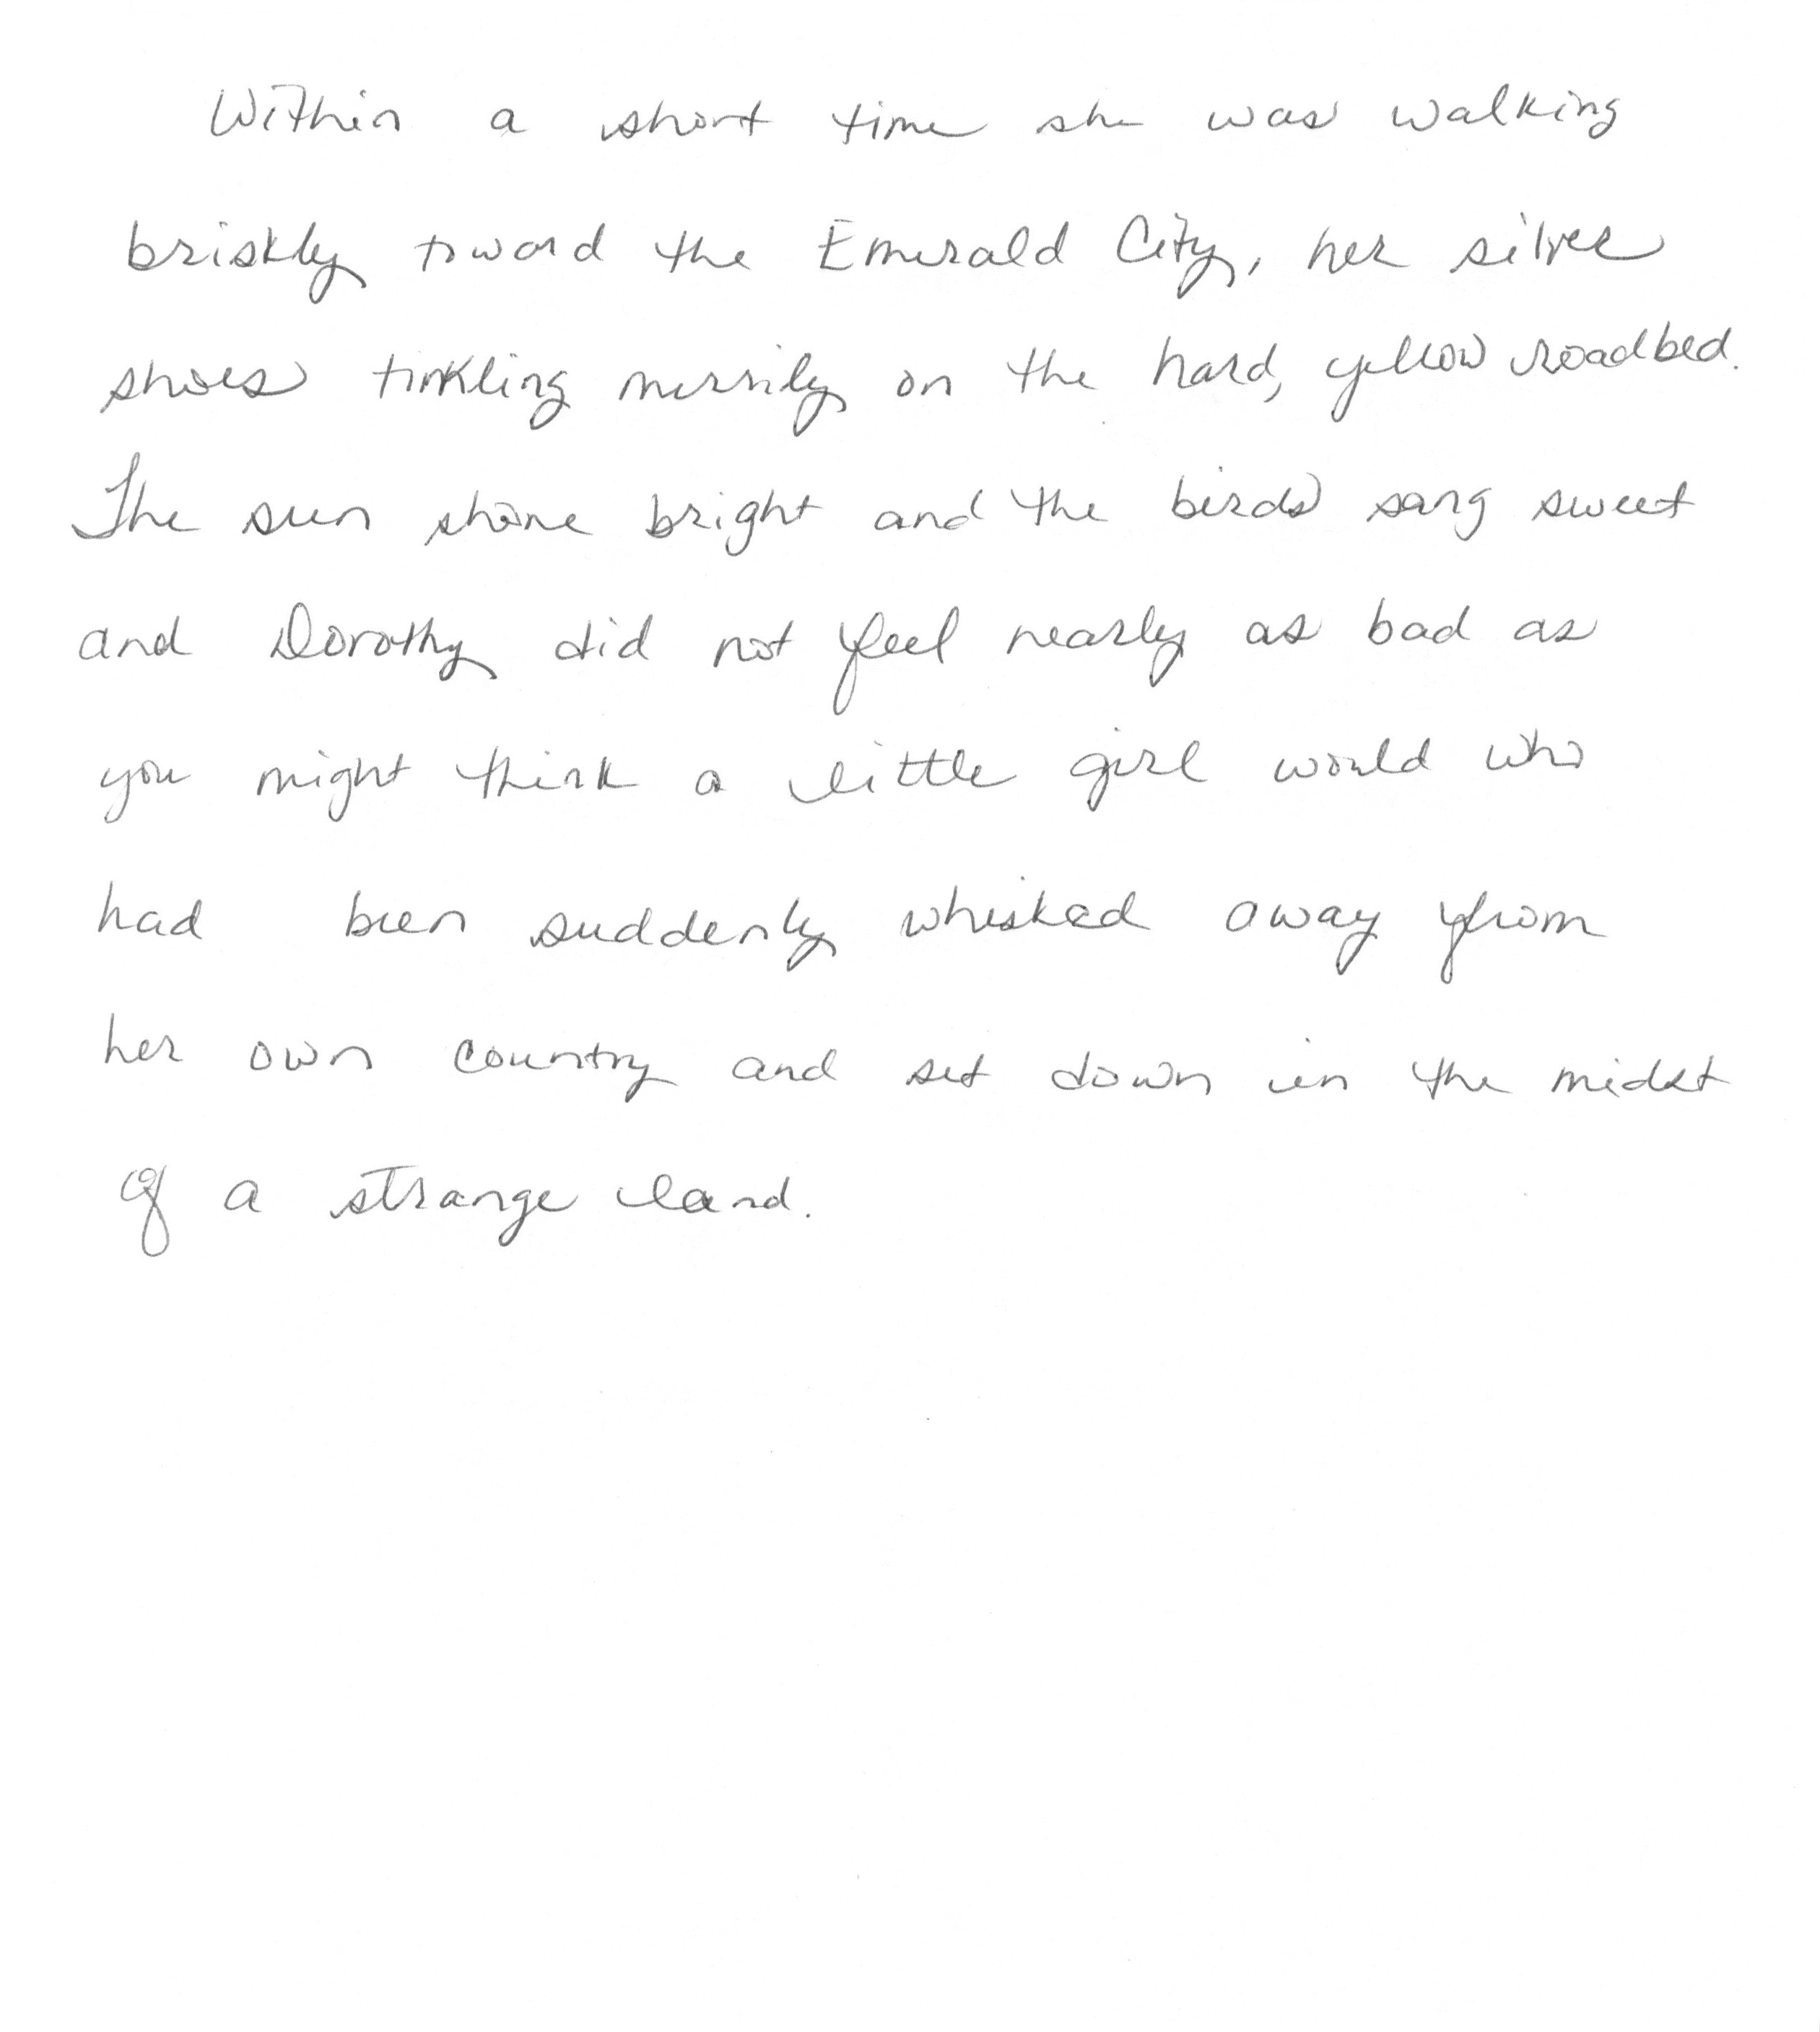 Within a short time she was walking
briskly toward the Emerald City, her silver
shoes tinkling merrily on the hard, yellow roadbed.
The sun shone bright and the birds sang sweet
and Dorothy did not feel nearly as bad as
you might think a little girl would who
had been suddenly whisked away from
her own country and set down in the midst
of a strange land.